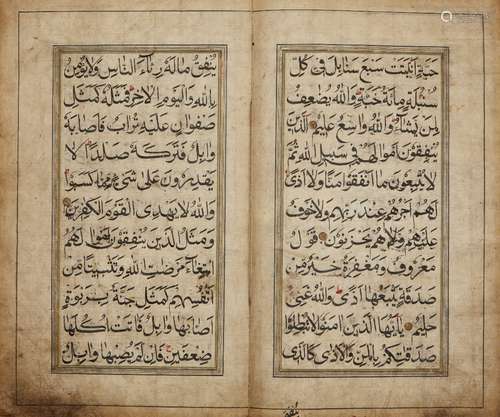 حَبَّةٍ اَنْبَتَتْ سَبْعَ سَنَابِلَ فِى كُلِّ
سُنْبُلَةٍ مِائَةُ حَبَّةٍ وَاللهُ يُضٰعِفُ
لِمَنْ يَشَاءُ وَاللهُ وَاسِعٌ عَلِيمٌ الَّذِينَ
يُنْفِقُونَ اَمْوَالَهُمْ فِى سَبِيلِ اللهِ ثُمَّ
لَا يُتْبِعُونَ مَا اَنْفَقُوا مَنًّا وَلَا اَذًى
لَهُمْ اَجْرُهُمْ عِنْدَ رَبِّهِمْ وَلَا خَوْفٌ
عَلَيْهِمْ وَلَا هُمْ يَحْزَنُونَ قَوْلٌ
مَعْرُوفٌ وَمَغْفِرَةٌ خَيْرٌ مِنْ
صَدَقَةٍ يَتْبَعُهَا اَذًى وَاللهُ غَنِىٌّ
حَلِيمٌ يٰاَيُّهَا الَّذِينَ اٰمَنُوا لَا تُبْطِلُوا
صَدَقٰتِكُمْ بِالْمَنِّ وَالْاَذٰى كَالَّذِى
ينفق
يُنْفِقُ مَالَهُ رِئَاءَ النَّاسِ وَلَا يُؤْمِنُ
بِاللهِ وَالْيَوْمِ الْاٰخِرِ فَمَثَلُهُ كَمَثَلِ
صَفْوَانٍ عَلَيْهِ تُرَابٌ فَاَصَابَهُ
وَابِلٌ فَتَرَكَهُ صَلْدًا لَا
يَقْدِرُونَ عَلٰى شَىْءٍ مِمَّا كَسَبُوا
وَاللهُ لَا يَهْدِى الْقَوْمَ الْكٰفِرِينَ
وَمَثَلُ الَّذِينَ يُنْفِقُونَ اَمْوَالَهُمُ
ابْتِغَاءَ مَرْضَاتِ اللهِ وَتَثْبِيتًا مِنْ
اَنْفُسِهِمْ كَمَثَلِ جَنَّةٍ بِرَبْوَةٍ
اَصَابَهَا وَابِلٌ فَاٰتَتْ اُكُلَهَا
ضِعْفَيْنِ فَاِنْ لَمْ يُصِبْهَا وَابِلٌ